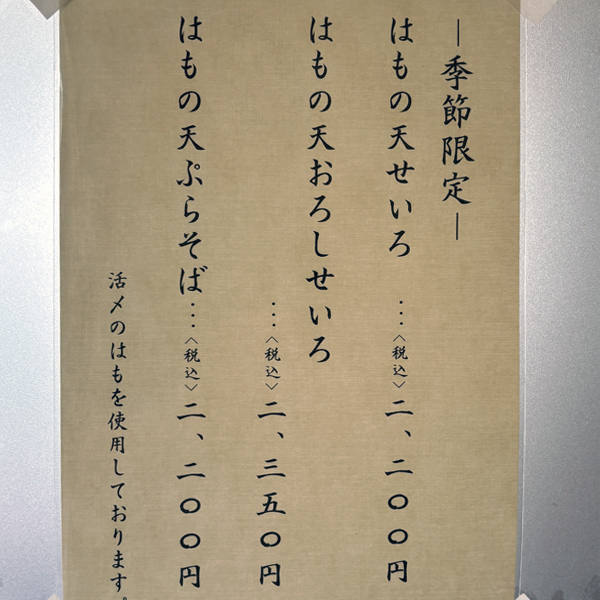 ―季節限定―
はもの天せいろ …〈税込〉二、二〇〇円
はもの天おろしせいろ
…〈税込〉二、三五〇円
はもの天ぷらそば…〈税込〉二、二〇〇円
活〆のはもを使用しております。